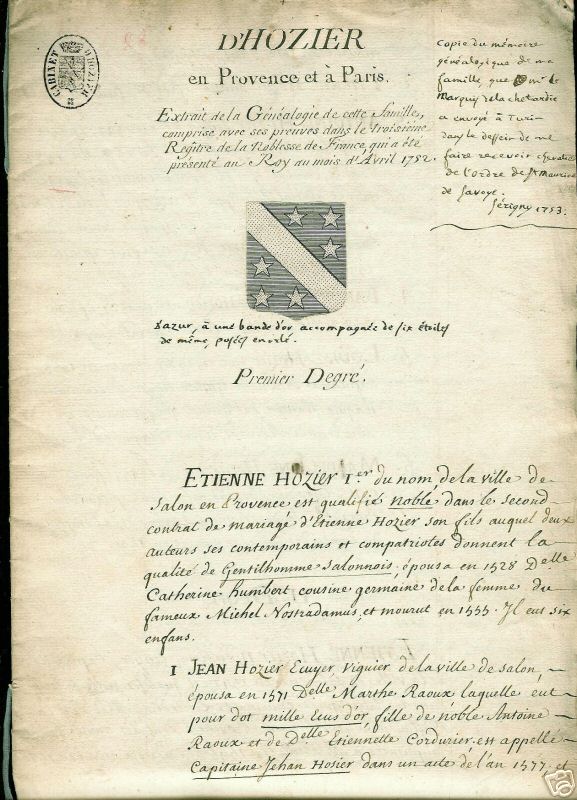 CABINET D'HOZIER
D'HOZIER
en Provence et à Paris.
Extrait de la Généalogie de cette famille,
comprise avec ses preuves dans le troisième
Regître de la Noblesse de France, qui a été
présenté au Roy au mois d'Avril 1752.
Copie du mémoire
généalogique de ma
famille que mr. le
Marquis de la chetardie
a envoyé à Turin
dans le dessein de me
faire recevoir chevalier
de l'ordre de St. Maurice
de Savoye.
Sérigny 1753.
d'azur, à une bande d'or accompagnée de six étoiles
de même, posées en orle.
Premier Degré.
ETIENNE HOZIER I.er du nom, de la ville de
Salon en Provence est qualifié noble dans le second
contrat de mariage d'Etienne Hozier son fils auquel deux
auteurs ses contemporains et compatriotes donnent la
qualité de Gentilhomme Salonnois, épousa en 1528 Delle
Catherine humbert cousine germaine de la femme du
fameux Michel Nostradamus, et mourut en 1555. Il eut six
enfans.
1 JEAN Hozier Ecuyer, Viguier de la ville de Salon,
épousa en 1571 Delle Marthe Raoux laquelle eut
pour dot mille Ecus d'or, fille de noble Antoine
Raoux et de Delle Etiennette Cordurier, est appellé
Capitaine Jehan Hosier dans un acte de l'an 1577, et